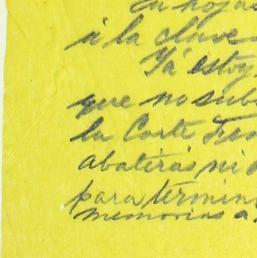 en hojas
á la clave
Ya estoy
que no sub
la Corte
abatirás ni
para termin
memorias a